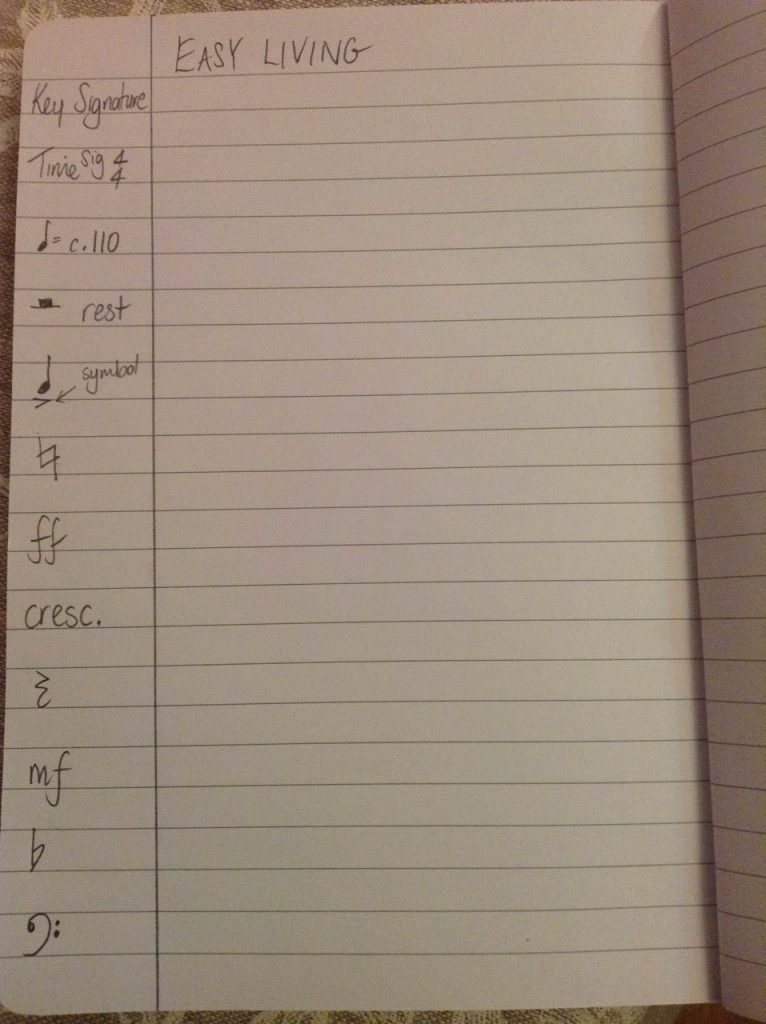 EASY LIVING
Key Signature
Time Sig 4/4
♩= c.110
𝄻 rest
♩ symbol
>
♮
ff
cresc.
𝄽
mf
♭
𝄢